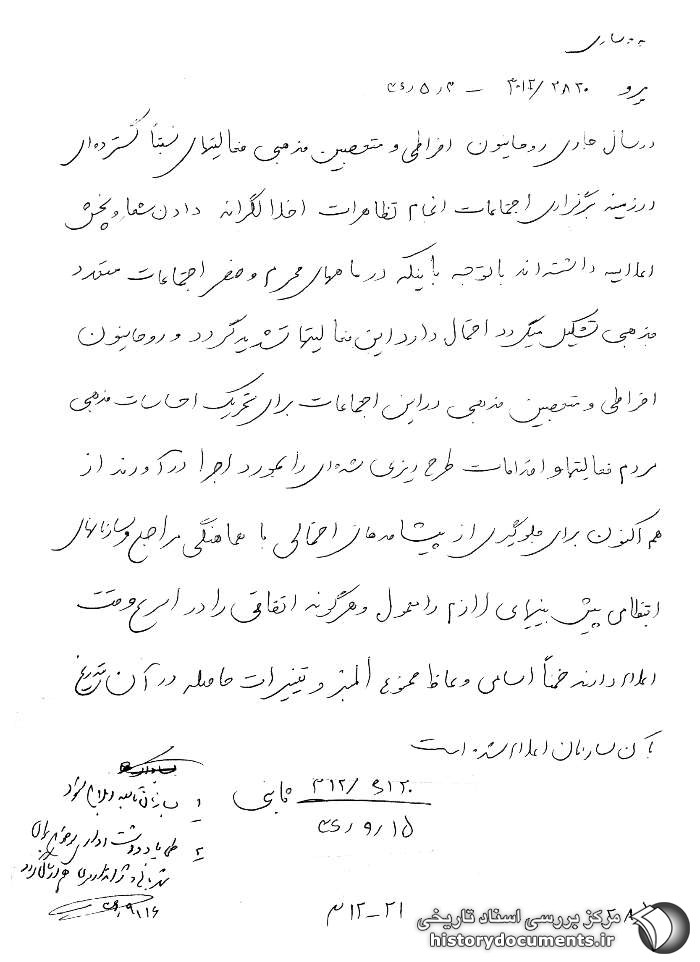 به ساری
پیرو ۳۰۱۲/۲۸۲۰ – ۳۶٫۵٫۳
در سال جاری روحانیون افراطی و متعصبین مذهبی فعالیتهای نسبتاً گسترده‌ای
در زمینه برگزاری اجتماعات انجام تظاهرات اخلالگرانه دادن شعار و پخش
اعلامیه داشته‌اند با توجه باینکه در ماههای محرم و صفر اجتماعات متعدد
مذهبی تشکیل میگردد احتمال دارد این فعالیتها تشدید گردد و روحانیون
افراطی و متعصبین مذهبی در این اجتماعات برای تحریک احساسات مذهبی
مردم فعالیتها و اقدامات طرح ریزی شده‌ای را بمورد اجرا درآورند از
هم اکنون برای جلوگیری از پیشامدهای احتمالی با هماهنگی مراجع و سازمانهای
انتظامی پیش بینیهای لازم را معمول و هرگونه اتفاقی را در اسرع وقت
اعلام دارند ضمناً اسامی وعاظ ممنوع المنبر و تغییرات حاصله در آن بتدریج
بآن سازمان اعلام شده است
۳۱۲/۶۱۲۰
۳۶٫۹٫۱۵
۱
۲
۳۶٫۹٫۱۶
۳۱۲-۲۱
مرکز بررسی اسناد تاریخی
historydocuments.ir